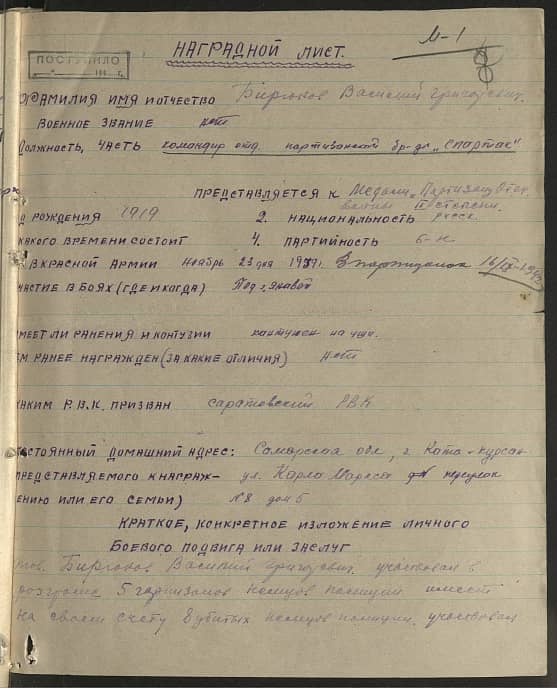 М-1
НАГРАДНОЙ ЛИСТ.
ПОСТУПИЛО
ФАМИЛИЯ ИМЯ И ОТЧЕСТВО Бирюков Василий
ВОЕННОЕ ЗВАНИЕ нет
ДОЛЖНОСТЬ, ЧАСТЬ командир отд. партизанской бр-ды "СПАРТАК"
ПРЕДСТАВЛЯЕТСЯ К Медали "Партизану Отеч.
войны II степени.
РОЖДЕНИЯ 1919 2. НАЦИОНАЛЬНОСТЬ русск.
КАКОГО ВРЕМЕНИ СОСТОИТ 4. ПАРТИЙНОСТЬ б-п
В КРАСНОЙ АРМИИ Ноябрь 23 дня В партизанах 16/IX-
АСТИЕ В БОЯХ (ГДЕ И КОГДА) Под
МЕЕТ ЛИ РАНЕНИЯ И КОНТУЗИИ контужен на
ЕМ РАНЕЕ НАГРАЖДЕН (ЗА КАКИЕ ОТЛИЧИЯ) нет
КАКИМ Р.В.К. ПРИЗВАН саратовский РВК
ОСТОЯННЫЙ ДОМАШНИЙ АДРЕС: обл, г. Ката-Курган
ПРЕДСТАВЛЯЕМОГО К НАГРАЖ- ул. Карла Маркса
ЕНИЮ ИЛИ ЕГО СЕМЬИ) N8 дом 5
КРАТКОЕ, КОНКРЕТНОЕ ИЗЛОЖЕНИЕ ЛИЧНОГО
БОЕВОГО ПОДВИГА ИЛИ ЗАСЛУГ
тов. Бирюков Василий участвовал в
разгроме 5 гарнизонов немцев полиции имеет
на своем счету 8 убитых немцев полиции. участвовал